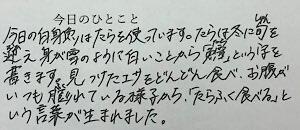 今日のひとこと
今日の白身魚はたらを使っています。たらは冬に旬を
しゅん
迎え身が雪のように白いことから「鱈」という字を
書きます。見つけたエサをどんどん食べ、お腹が
いつも膨れている様子から、「たらふく食べる」と
いう言葉が生まれました。